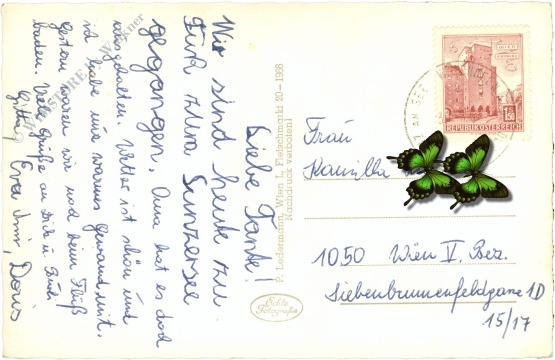 Liebe Tante!
Wir sind heute zu
Fuß zum Lunzersee
gegangen. Oma hat es doch
ausgehalten. Wetter ist schön und
ich habe nur warmes Gewand mit.
Gestern waren wir noch beim Fluß
baden. Viele Grüße an Dich u.
Gitti, Eva, Doris
P. Ledermann, Wien I, Fleischmarkt 20 - 1998
Nachdruck verboten!
Echte
Fotografie
AM SEE
1.50
REPUBLIK ÖSTERREICH
Frau
Kamilla
1050 Wien V. Bez.
Siebenbrunnenfeldgasse 1D
15/17